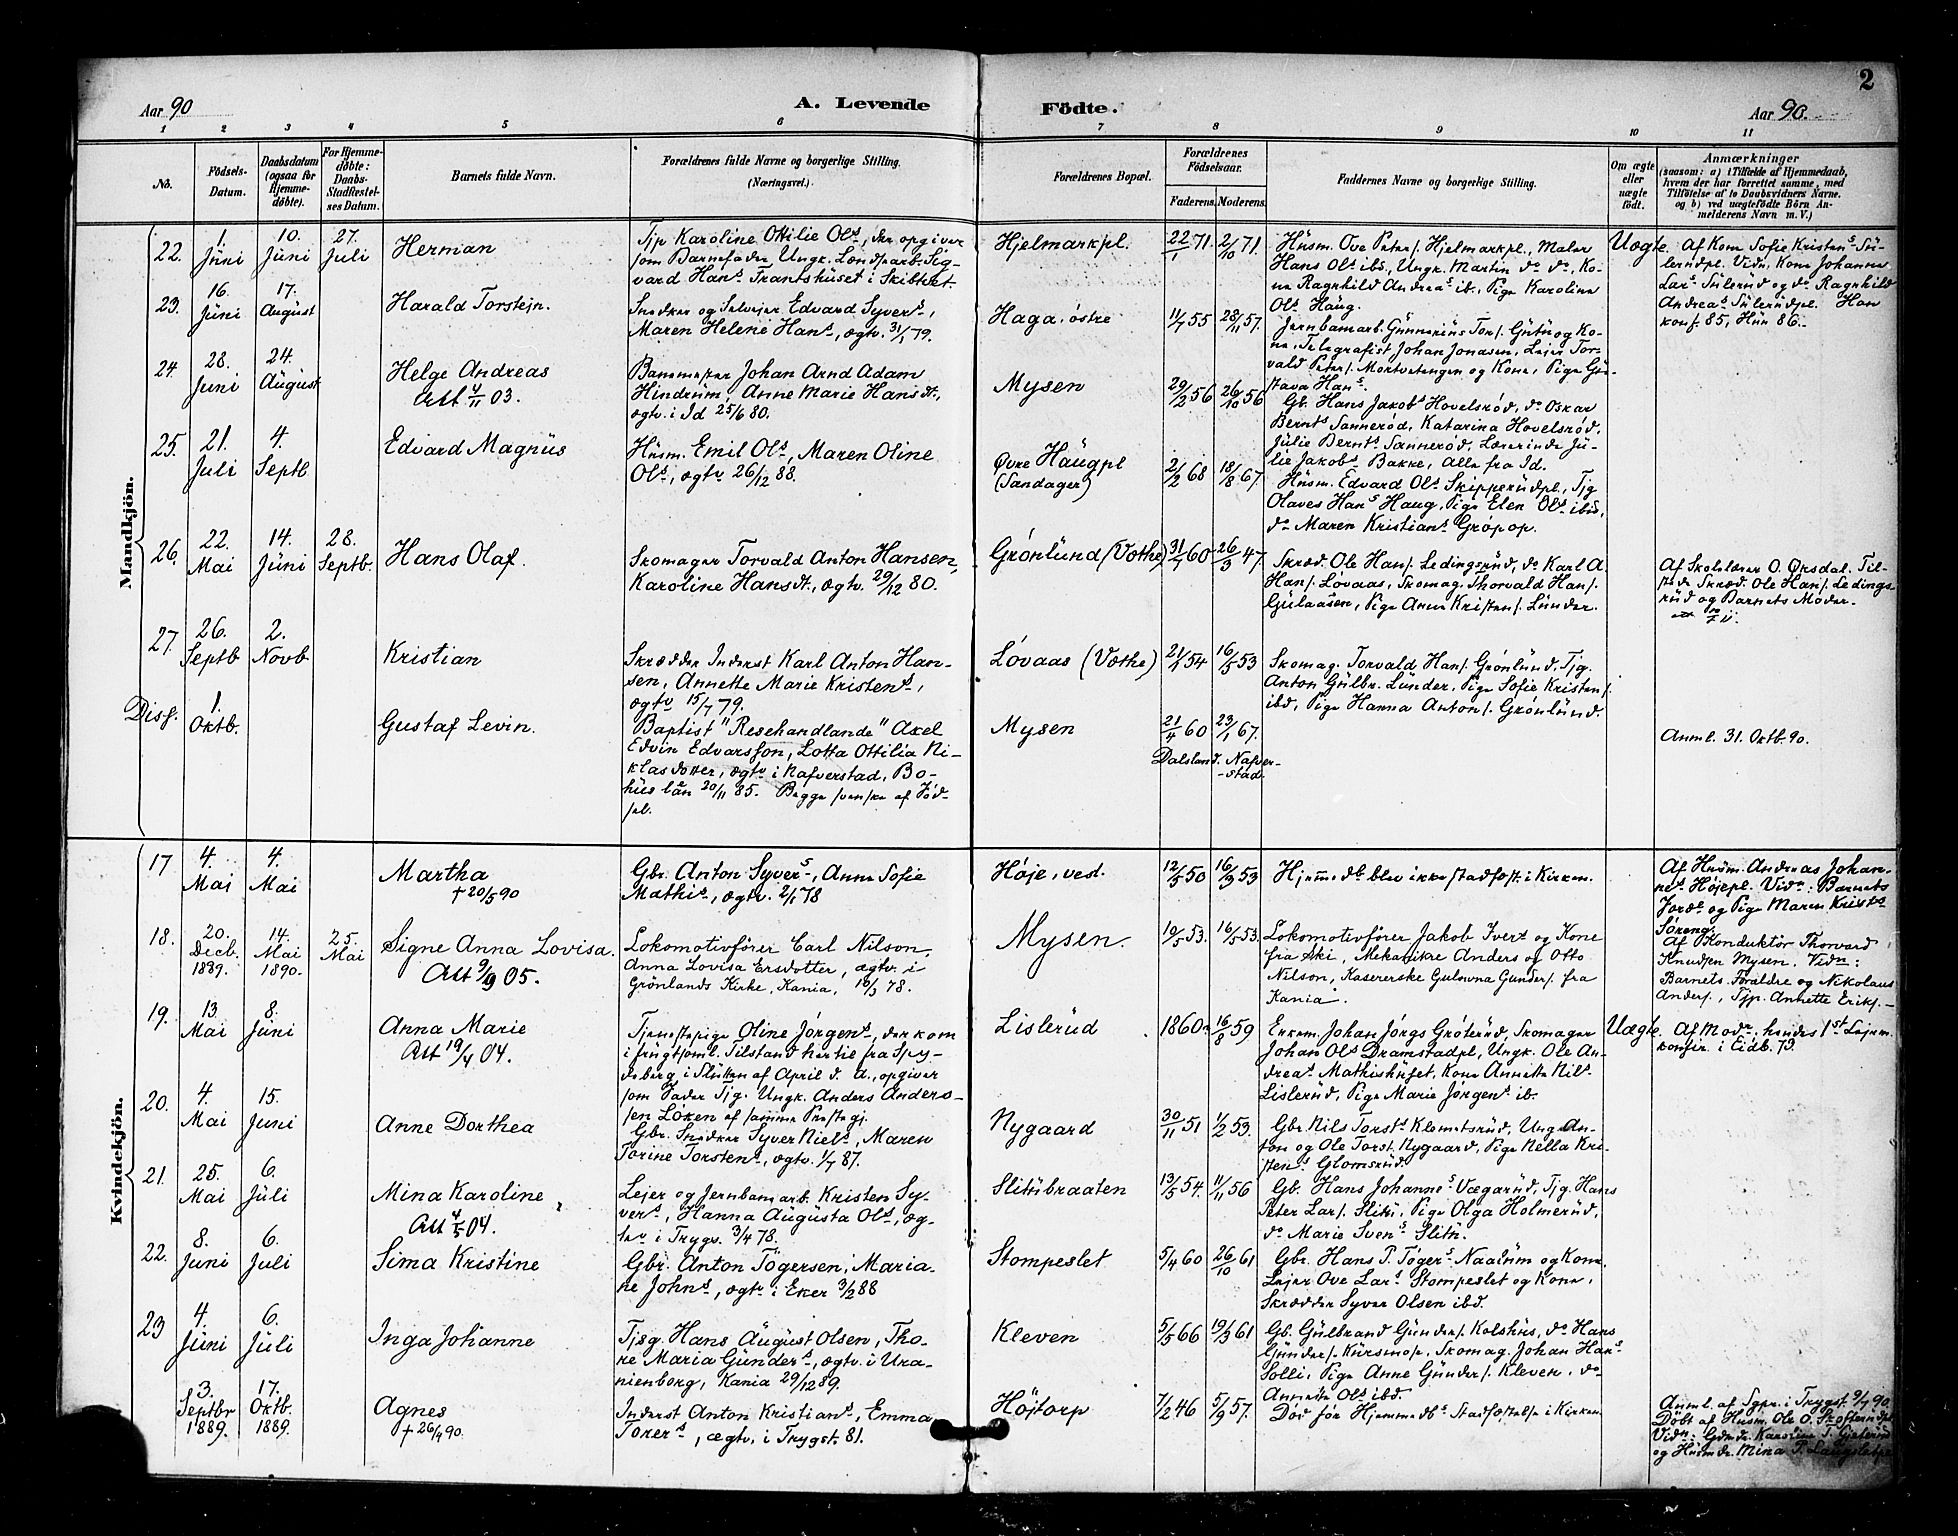 2
Aar 90
A. Levende
Födte.
Aar 90.
1 2 3 4 5 6 7 8 9 10 11
No.
Födsels-
Datum.
Daabsdatum
(ogsaa for
Hjemme-
døbte).
For Hjemme-
døbte:
Daabs-
Stadfæstel-
ses Datum.
Barnets fulde Navn.
Forældrenes fulde Navne og borgerlige Stilling.
(Næringsvei.)
Forældrenes Bopæl.
Forældrenes
Födselsaar.
Faderens. Moderens.
Faddernes Navne og borgerlige Stilling.
Om ægte
eller
uægte
født.
Anmærkninger
(saasom: a) i Tilfælde af Hjemmedaab,
hvem der har forrettet samme, med
Tilföielse af to Daabsvidners Navne.
og b) ved uægtefödte Börn An-
melderens Navn m. V.)
Mandkjön.
22.
1.
Juni
10.
Juni
27.
Juli
Herman
Tjp Karoline Ottilie Ols, der opgiver
som Barnefader Ungk. Landarb. Sig-
vard Hans Frantshuset i Skibtvet.
Hjelmarkpl.
22/1 71. 2/10 71.
Husm. Ove Peters. Hjelmarkpl., Maler
Hans Ols ibd., Ungk. Martin do do, Ko-
ne Ragnhild Andreas ib., Pige Karoline
Ols Haug.
Uægte
Af Kone Sofie Kristens Su-
lerudpl. Vidn. Kone Johanne
Lars Sulerud og do Ragnhild
Andreas Sulerudpl. Han
konf. 85, Hun 86.
23.
16.
Juni
17.
August
Harald Torstein.
Snedker og Selveier Edvard Syvers,
Maren Helene Hans, ægtv. 31/1 79.
Haga, østre
11/7 55 28/11 57.
Jernbanearb. Gunnerius Tors. Gutu og Ko-
ne, Telegrafist Johan Jonasen, Leier Tor-
vald Peters. Mortvetengen og Kone, Pige Gu-
stava Hans.
24.
28.
Juni
24.
August
Helge Andreas
Att 4/11 03.
Banemester Johan Arnd Adam
Hindrum, Anne Marie Hansdt.,
ægtv. i Id 25/6 80.
Mysen
29/2 56 26/10 56
Gb. Hans Jakobs Hovelsrød, do Oskar
Bernts Sannerød, Katarina Hovelsrød,
Julie Bernts Sannerød, Lærerinde Ju-
lie Jakobs Bakke, Alle fra Id.
25.
21.
Juli
4.
Septb.
Edvard Magnus
Husm. Emil Ols, Maren Oline
Ols, ægtv. 26/12 88.
Øvre Haugpl
(Sandager)
2/2 68 18/8 67.
Husm. Edvard Ols Skipperudpl., Tjg
Olaves Hans Haug, Pige Elen Ols ibd.,
do Maren Kristians Gropop.
26.
22.
Mai
14.
Juni
28.
Septb.
Hans Olaf.
Skomager Torvald Anton Hansen,
Karoline Hansdt., ægtv. 29/12 80.
Grønlund (Vothe)
31/7 60 26/3 47.
Skræd. Ole Hans. Ledingsrud, do Karl A.
Hans. Løvaas, Skomag. Thorvald Hans.
Gulaasen, Pige Anne Kristens. Lunder.
Af Skolelærer O. Øksdal. Til-
stede Skræd. Ole Hans. Ledings-
rud og Barnets Moder.
27.
26.
Septb
2.
Novb
Kristian
Skrædder Inderst Karl Anton Han-
sen, Annette Marie Kristens,
ægtv 15/7 79.
Løvaas (Vothe)
54 16/5 53
Skomag. Torvald Hans. Grønlund, Tjg.
Anton Gulbr. Lunder, Pige Sofie Kristens.
ibd, Pige Hanna Antons. Grønlund.
Diss.
1.
Oktb.
Gustaf Levin.
Baptist "Resehandlande" Axel
Edvin Edvarsson, Lotta Ottilia Ni-
klasdotter, ægtv i Nafverstad, Bo-
hus län 20/11 85. Begge svenske af Fød-
sel.
Mysen
21/4 60 23/1 67.
Dalsland. Nafver-
-stad.
Anml. 31. Oktb. 90.
Kvindekjön.
17
4.
Mai
4.
Mai
Martha
+ 20/5 90
Gbr. Anton Syvers, Anne Sofie
Mathis, ægtv. 2/1 78
Høje, vest.
12/5 50 16/9 53
Hjemmedb. blev ikke stadfæst. i Kirken.
Af Husm. Andreas Johan-
nes Højepl. Vidn: Barnets
Foræ. og Pige Maren Krists
Søreng.
18.
20.
Decb.
1889.
14.
Mai
1890.
25.
Mai
Signe Anna Lovisa.
Att 9/9 05.
Lokomotivfører Carl Nilson,
Anna Lovisa Ersdotter, ægtv. i
Grönlands Kirke, Kania, 16/3 78.
Mysen.
19/5 53. 16/5 53.
Lokomotivfører Jakob Ivers og Kone
fra Ski, Mekanikre Anders og Otto
Nilson, Kasererske Gulovna Gunders. fra
Kania.
Af Konduktør Thorvard
Knudsen Mysen. Vidn:
Barnets Forældre og Nikolaus
Anders., Tjp. Annette Eriks.
19.
13.
Mai
8.
Juni
Anna Marie
Att 19/4 04.
Tjenestepige Oline Jørgens, der kom
i frugtsoml. Tilstand hertil fra Spy-
deberg i Slutten af April d. A., opgiver
som Fader Tjg. Ungk. Anders Anders-
sen Löken af samme Præstegj.
Lislerud
1860. 16/8 59
Enkem. Johan Jørgs Gröterud, Skomager
Johan Ols Dramstadpl, Ungk. Ole An-
dreas Mathishuset, Kone Annette Nils.
Lislerud, Pige Marie Jørgens ib.
Uægte.
Af Modn. hendes 1st Lejerm.
konfir. i Eidb. 73.
20.
4.
Mai
15.
Juni
Anne Dorthea
Gbr. Snedker Syver Niels, Maren
Torine Torstens, ægtv. 1/7 87.
Nygaard
30/11 51 1/2 53.
Gbr. Nils Torsts Klemetsrud, Ungk. An-
ton og Ole Torst. Nygaard, Pige Nella Kri-
stens Glomsrud.
21.
25.
Mai
6.
Juli
Mina Karoline
Att 4/5 04.
Lejer og Jernbanearb. Kristen Sy-
vers, Hanna Augusta Ols, æg-
tev i Trygs. 3/4 78.
Slitubraaten
13/5 54. 11/11 56
Gb. Hans Johannes Vægarud, Tjg. Hans
Peter Lars. Slitu, Pige Olga Holmerud,
do Marie Svens Slitu.
22.
8.
Juni
6.
Juli
Sima Kristine
Gbr. Anton Tögersen, Maria-
ne Johns, ægtv i Eker 3/2 88
Stompeslet
5/4 60 26/10 61
Gbr. Hans P. Tøgers Naalum og Kone,
Lejer Ove Lars Stompeslet og Kone,
Skrædder Syver Olsen ibd.
23
4.
Juni
6.
Juli
Inga Johanne
Tjsg. Hans August Olsen, Tho-
ne Maria Gunders, ægtv. i Ura-
nienborg, Kania 29/12 89.
Kleven
5/5 66 19/3 61
Gb. Gulbrand Gunders. Kolshus, do Hans
Gunders. Kursmos, Skomag. Johan Hans
Solli, Pige Anne Gunders. Kleven, do
Annette Ols ibd.
3.
Septbr
1889.
17.
Oktb.
1889.
Agnes
+ 26/4 90.
Inderst Anton Kristians, Emma
Torers, ægtv. i Trygst. 81.
Højtorp
7/2 46 5/9 57.
Död før Hjemmedbs Stadfæstelse i Kirken
Anml. af Sgpr. i Trygst. 9/7 90.
Döbt af Husm. Ole O.
Vidn: Gdm. dr. Karoline T.
og Husm. dr. Mina P.